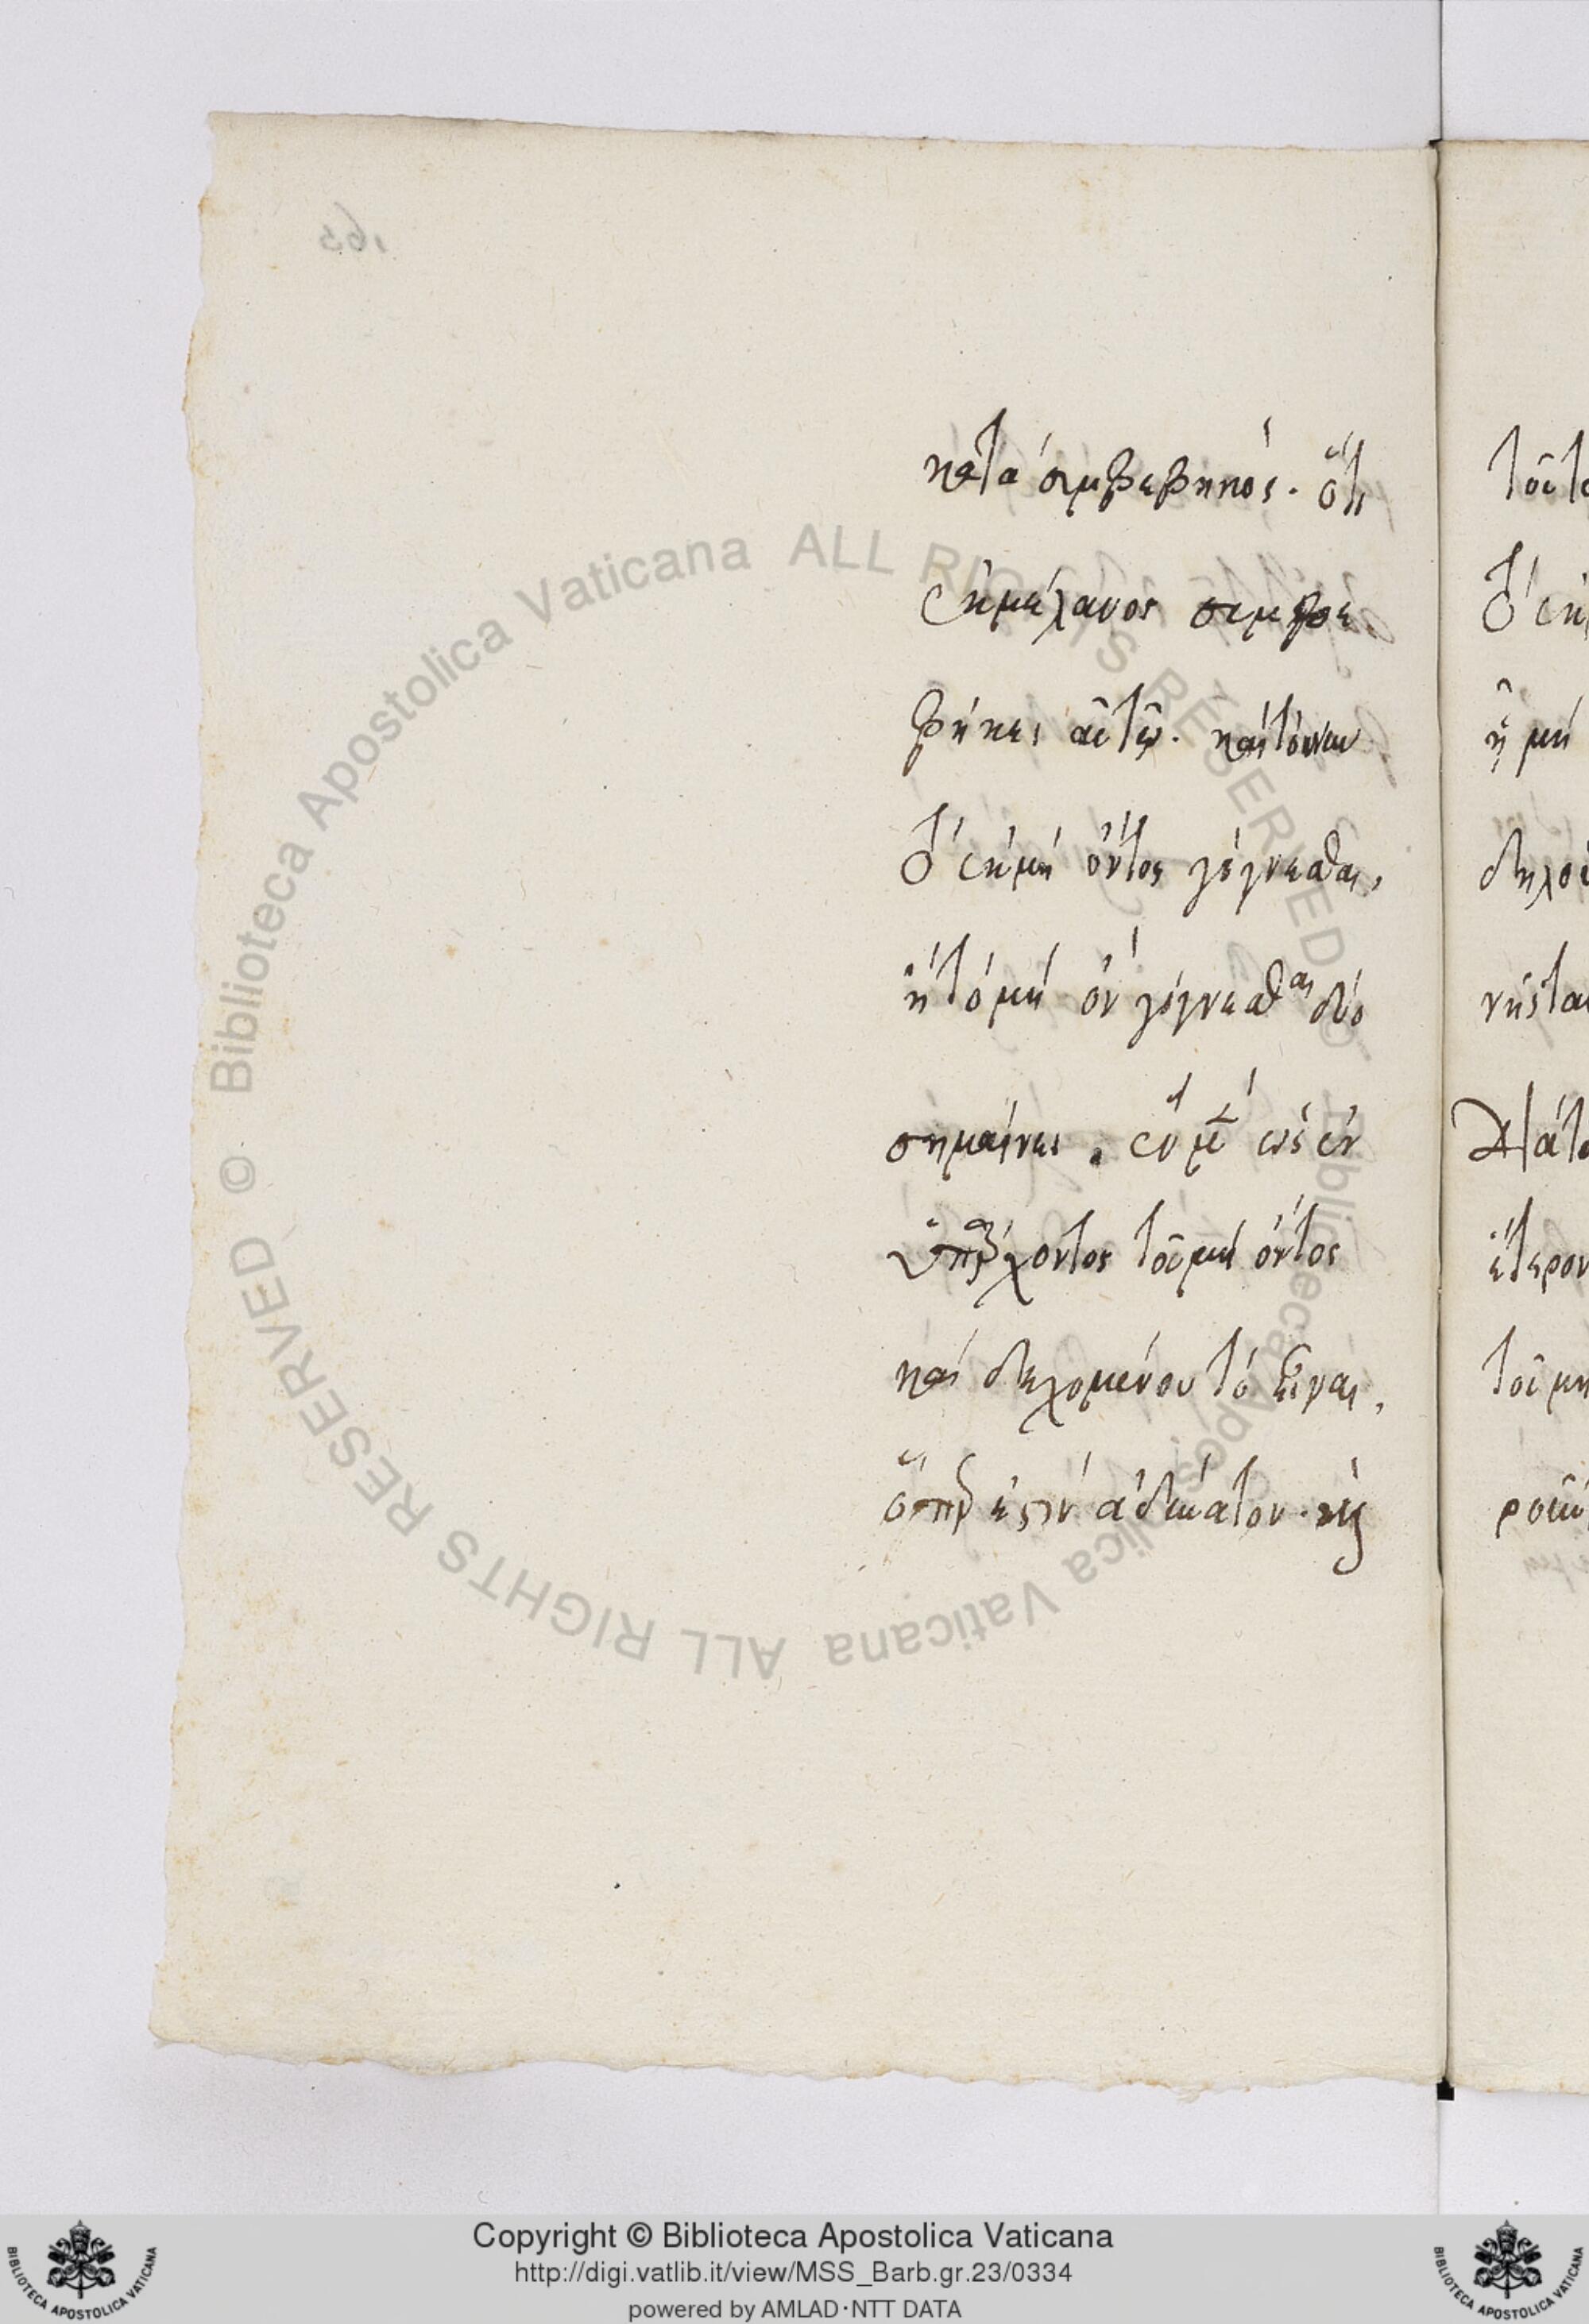 κατὰ συμβεβηκός. ὅτι
ἐκ μέλανος συμβε
βήκει αὐτῷ. καὶ τοίνυν
τὸ ἐκ μὴ ὄντος γίγνεσθαι,
ἢ τὸ μὴ ὂν γίγνεσθαι δύο
σημαίνει. ἓν μὲν ὡς ἐν
ὑπάρχοντος τοῦ μὴ ὄντος
καὶ δεχομένου τὸ εἶναι,
ὅπερ ἐστὶν ἀδύνατον. εἰς
τοῦτ
τὸ ἐκ
ἢ μὴ
δηλοῖ
νίστα
ἕτερον
τοῦ μη
Copyright © Biblioteca Apostolica Vaticana
http://digi.vatlib.it/view/MSS_Barb.gr.23/0334
powered by AMLAD·NTT DATA
BIBLIOTECA APOSTOLICA VATICANA
BIBLIOTECA APOSTOLICA VATICANA
© Biblioteca Apostolica Vaticana ALL RIGHTS RESERVED
© Biblioteca Apostolica Vaticana ALL RIGHTS RESERVED